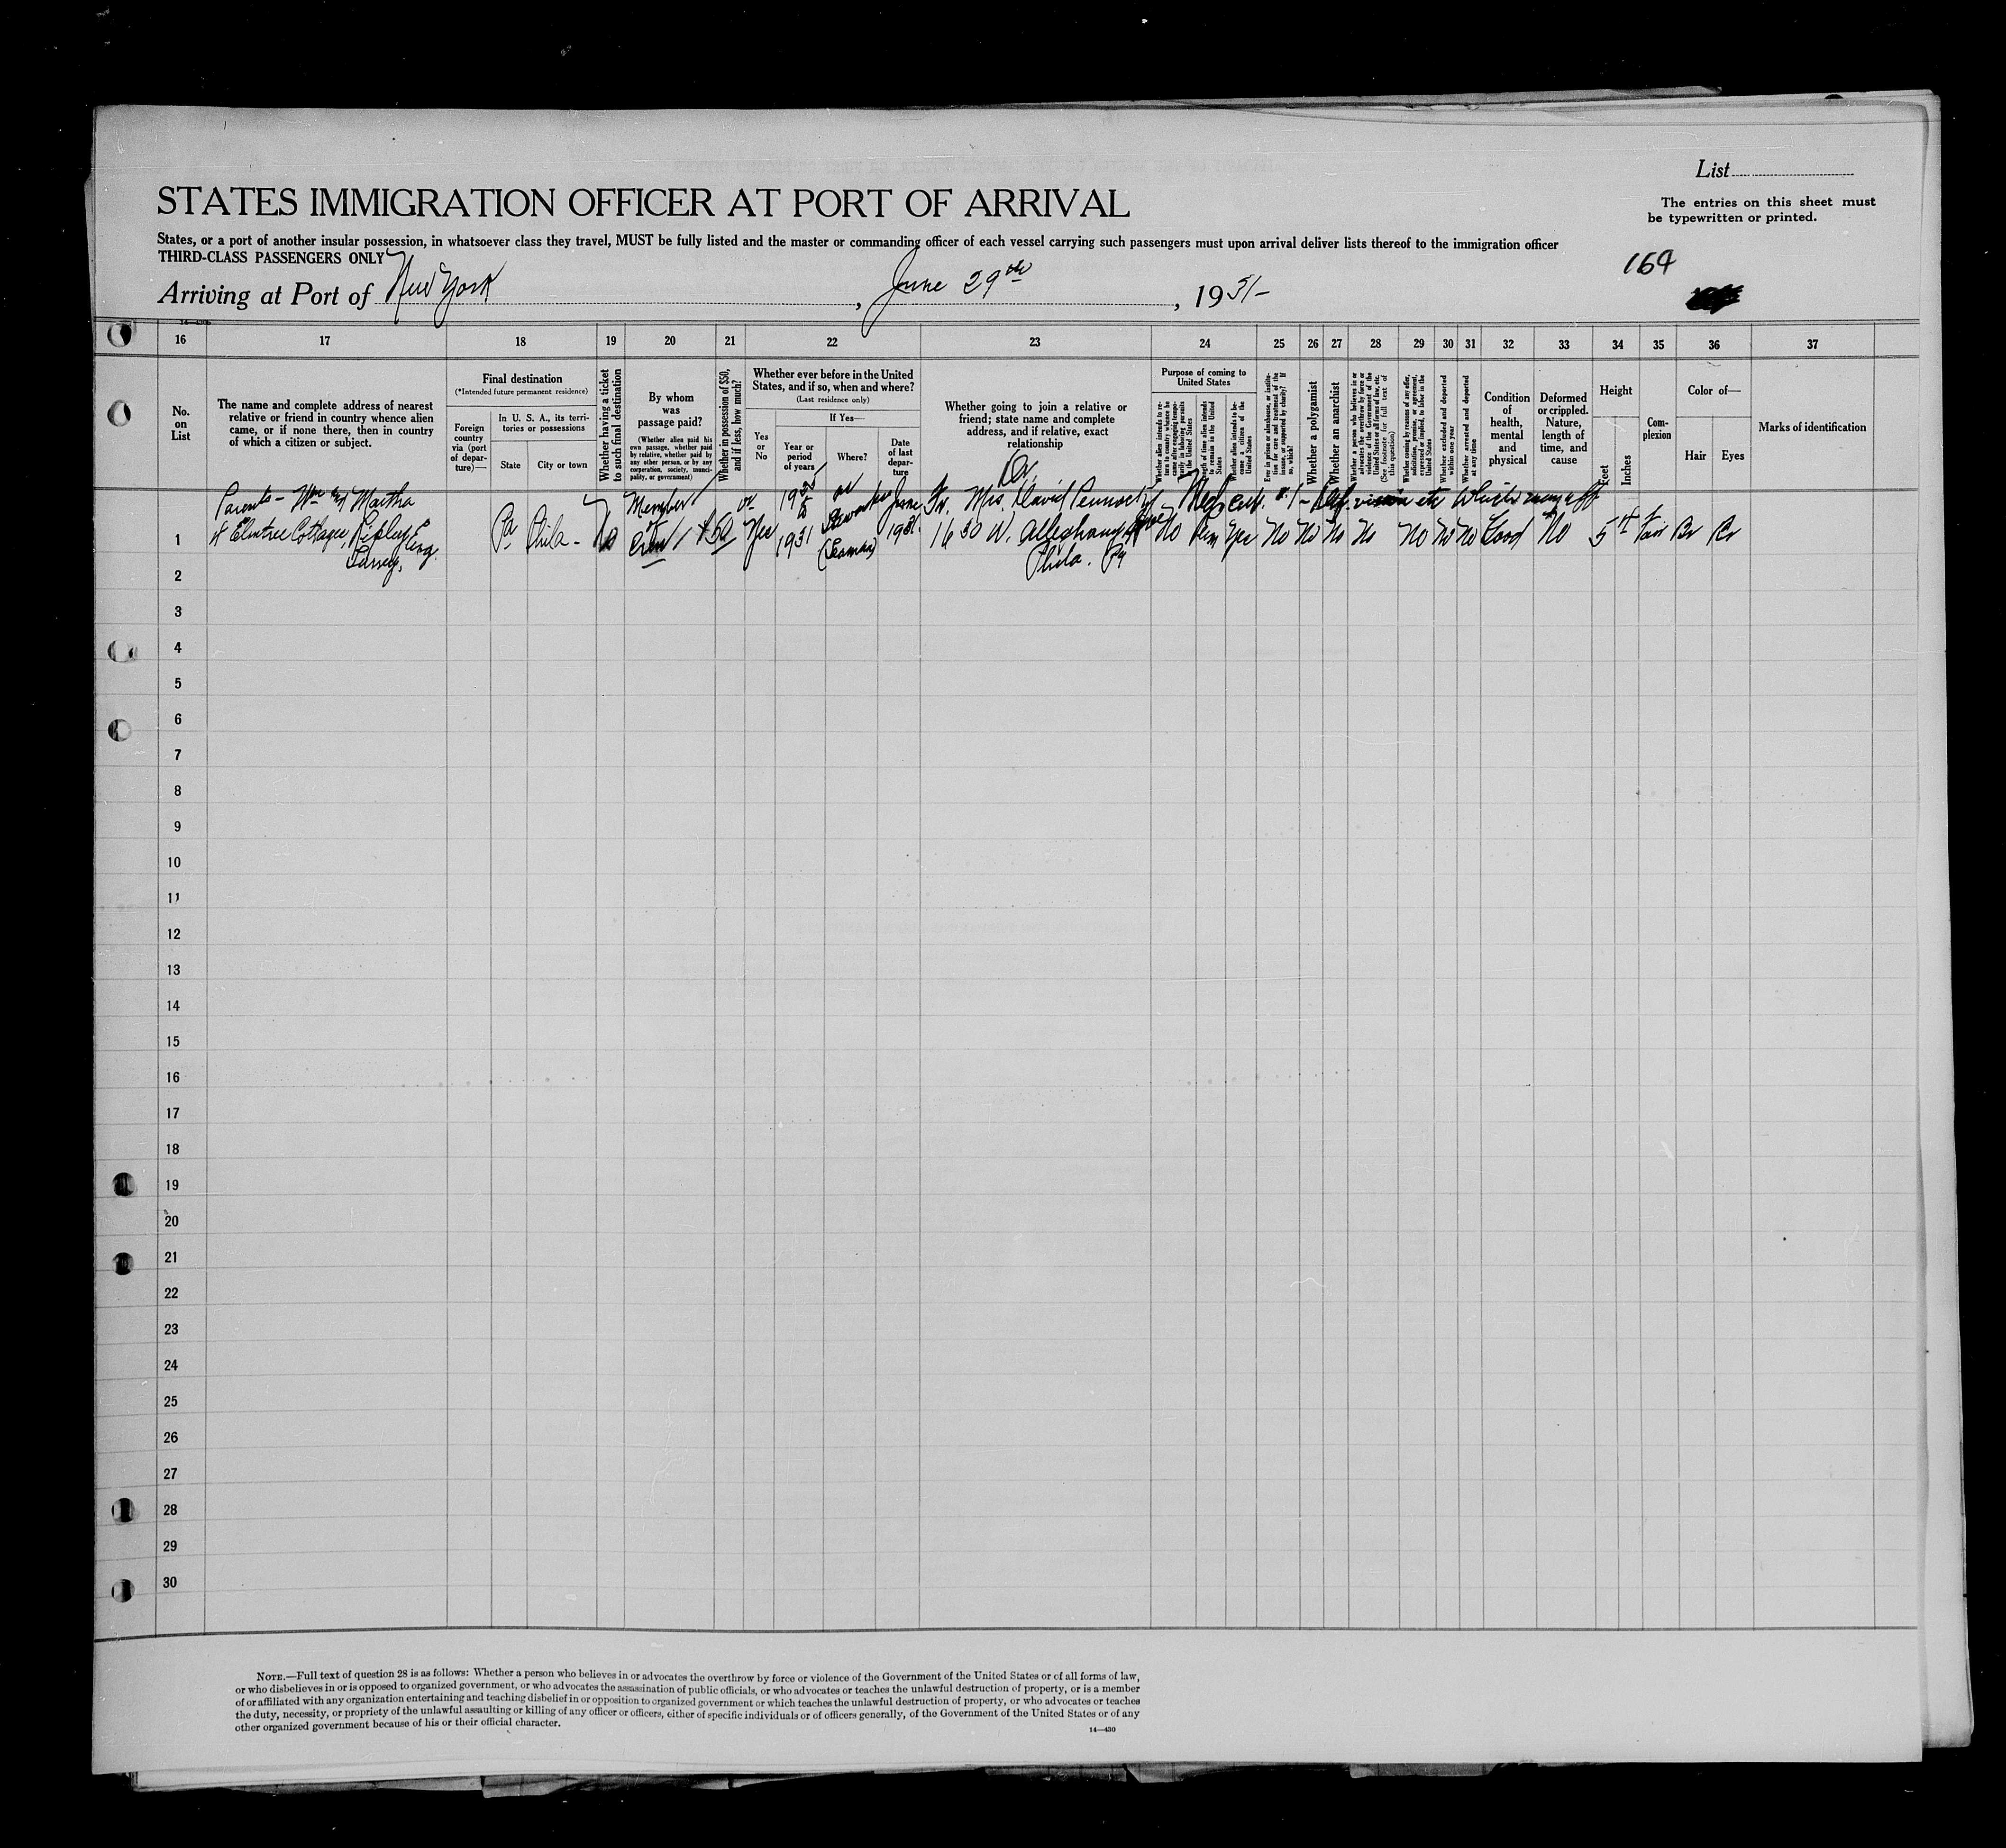 List
STATES IMMIGRATION OFFICER AT PORT OF ARRIVAL
The entries on this sheet must
be typewritten or printed.
States, or a port of another insular possession, in whatsoever class they travel, MUST be fully listed and the master or commanding officer of each vessel carrying such passengers must upon arrival deliver lists thereof to the immigration officer
THIRD-CLASS PASSENGERS ONLY
164
Arriving at Port of New York, June 29th, 1931-
16 17 18 19 20 21 22 23 24 25 26 27 28 29 30 31 32 33 34 35 36 37
No.
on
List
The name and complete address of nearest
relative or friend in country whence alien
came, or if none there, then in country
of which a citizen or subject.
Final destination
(*Intended future permanent residence)
Foreign
country
via (port
of depar-
ture)—
In U. S. A., its terri-
tories or possessions
State
City or town
Whether having a ticket
to such final destination
By whom
was
passage paid?
(Whether alien paid his
own passage, whether paid
by relative, whether paid by
any other person, or by any
corporation, society, munici-
pality, or government)
Whether in possession of $50,
and if less, how much?
Whether ever before in the United
States, and if so, when and where?
(Last residence only)
Yes
or
No
If Yes—
Year or
period
of years
Where?
Date
of last
depar-
ture
Whether going to join a relative or
friend; state name and complete
address, and if relative, exact
relationship
Purpose of coming to
United States
Whether alien intends to re-
turn to country whence he
came after engaging tempo-
rarily in laboring pursuits
in the United States
Length of time alien intends
to remain in the United
States
Whether alien intends to be-
come a citizen of the
United States
Ever in prison or almshouse, or institu-
tion for care and treatment of the
insane, or supported by charity? If
so, which?
Whether a polygamist
Whether an anarchist
Whether a person who believes in or
advocates the overthrow by force or
violence of the Government of the
United States or all forms of law, etc.
(See footnote for full text of
this question)
Whether coming by reasons of any offer,
solicitation, promise, or agreement,
expressed or implied, to labor in the
United States
Whether excluded and deported
within one year
Whether arrested and deported
at any time
Condition
of
health,
mental
and
physical
Deformed
or crippled.
Nature,
length of
time, and
cause
Height
Feet
Inches
Com-
plexion
Color of—
Hair
Eyes
Marks of identification
Parents - Wm and Martha
4 Elmtree Cottages, Ripley
Surrey, Eng.
Pa Phila - No
Member
of
crew
$50 Yes
1931
(Seaman)
June
1931
Fr. Mrs. David
1630 W. Alleghany Ave
Phila. Pa
Med cert. vision etc which may aff
No Perm Yes No No No No No No No Good No 5 Fair Br Br
1
2
3
4
5
6
7
8
9
10
11
12
13
14
15
16
17
18
19
20
21
22
23
24
25
26
27
28
29
30
NOTE.—Full text of question 28 is as follows: Whether a person who believes in or advocates the overthrow by force or violence of the Government of the United States or of all forms of law,
or who disbelieves in or is opposed to organized government, or who advocates the assassination of public officials, or who advocates or teaches the unlawful destruction of property, or is a member
of or affiliated with any organization entertaining and teaching disbelief in or opposition to organized government or which teaches the unlawful destruction of property, or who advocates or teaches
the duty, necessity, or propriety of the unlawful assaulting or killing of any officer or officers, either of specific individuals or of officers generally, of the Government of the United States or of any
other organized government because of his or their official character.
14—430